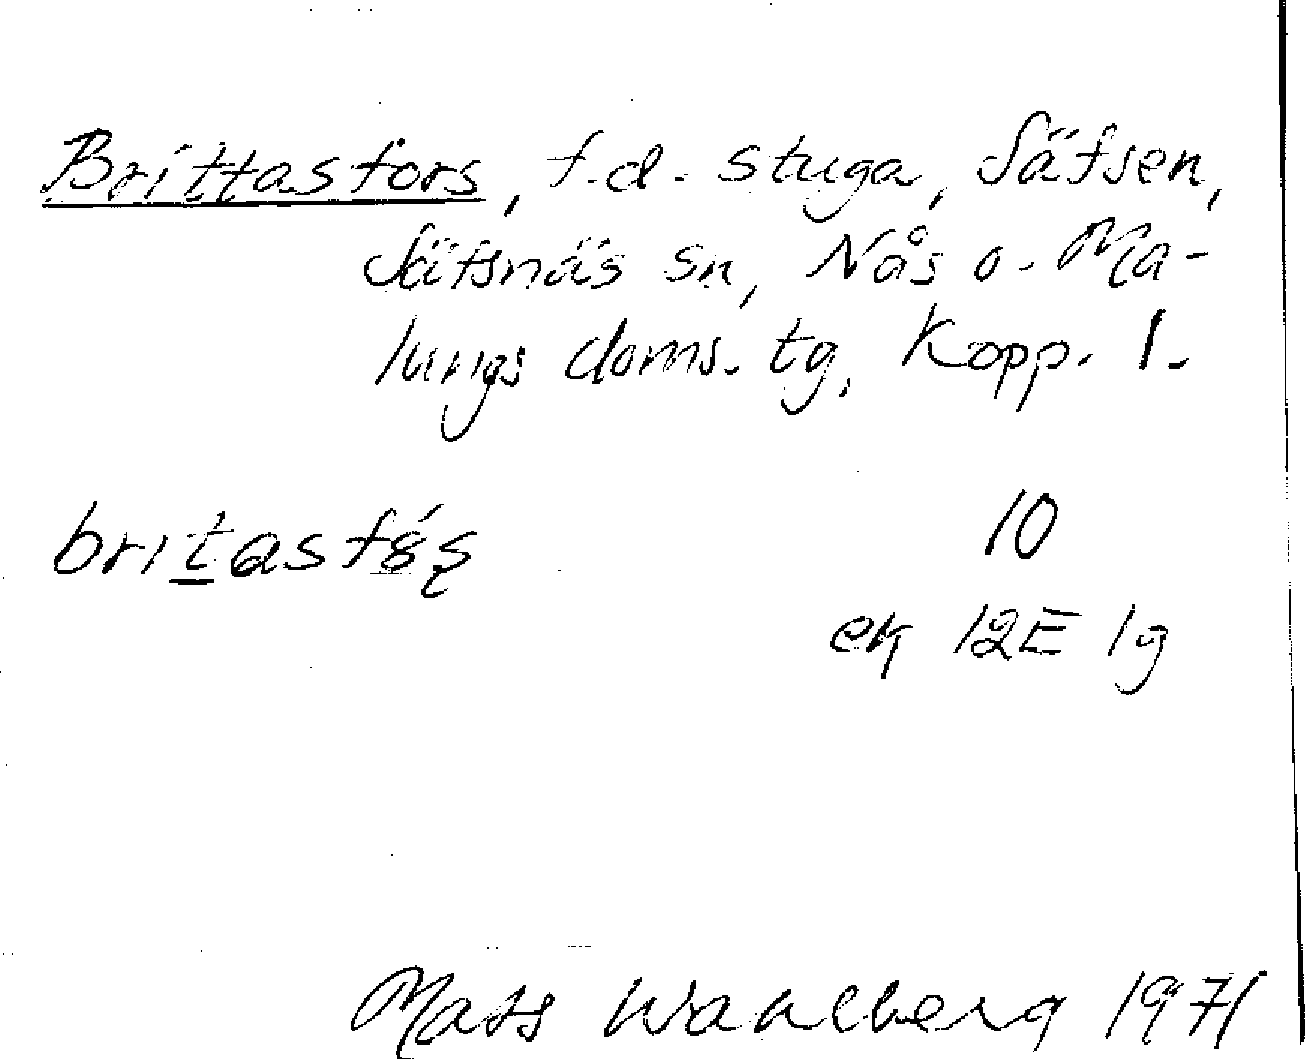 Brittasfors, f.d. stuga, Säfsen,
Säfsnäs sn, Nås o. Ma-
lungs doms. tg, Kopp. l.
10
ek 12E 1g
Mats Wahlberg 1971